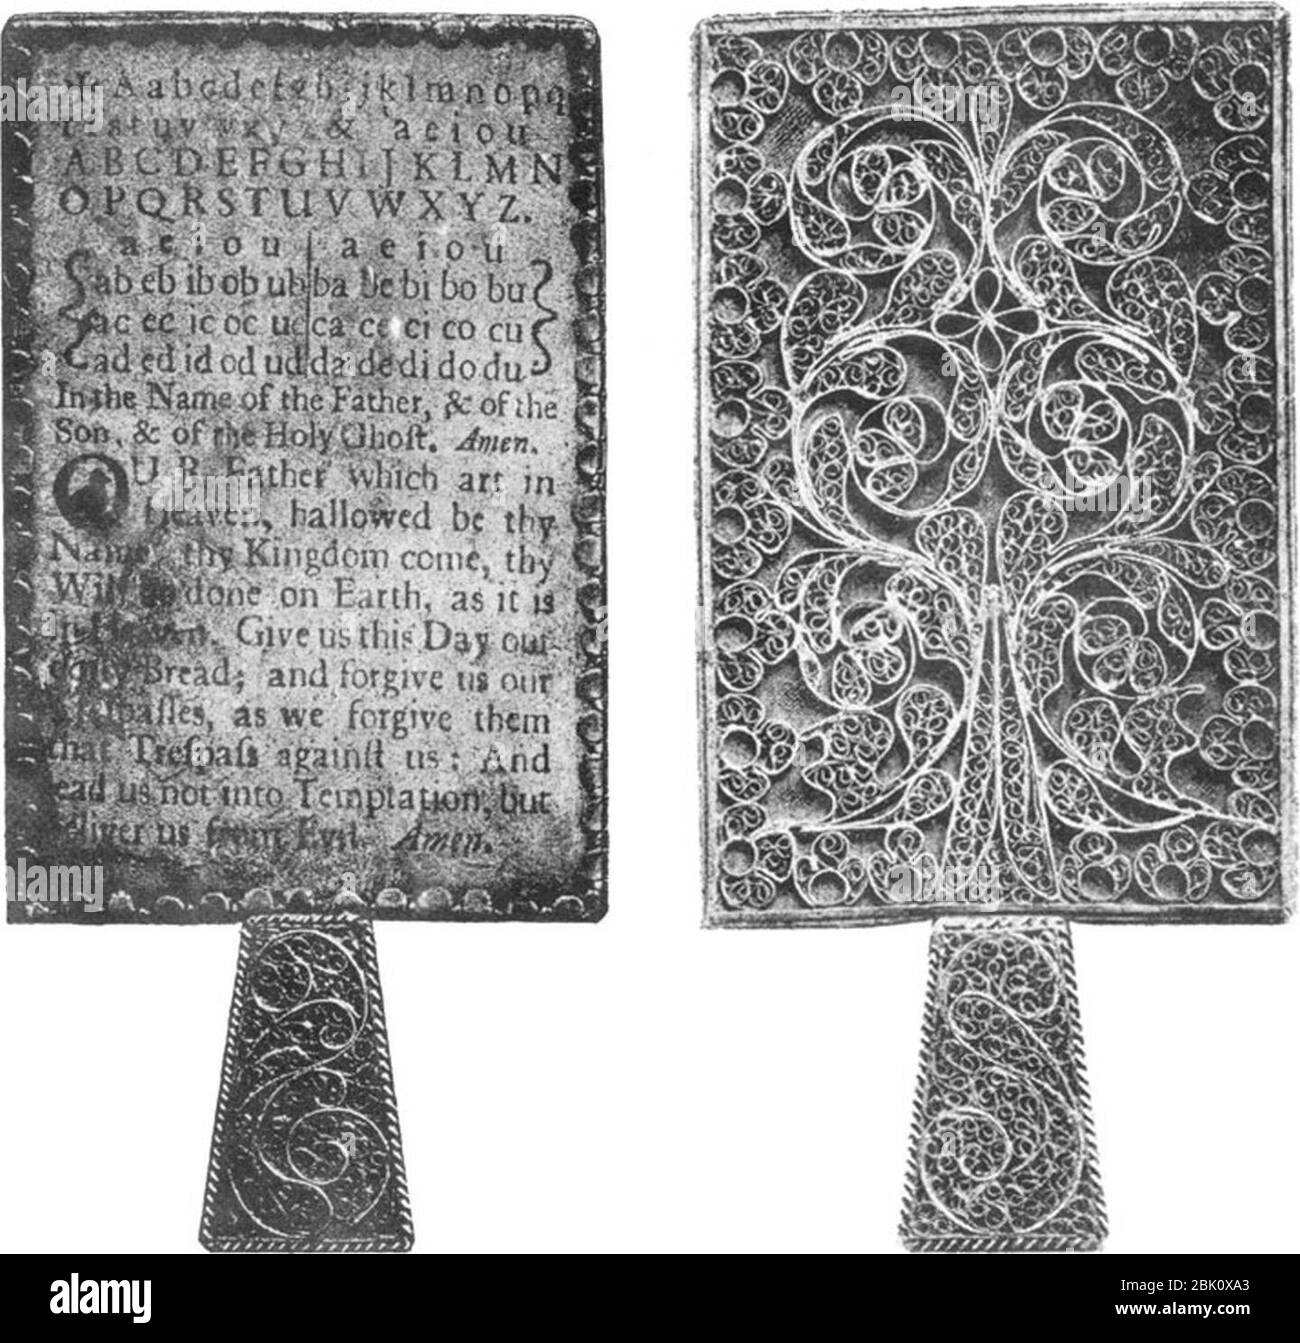 ✠ A a b c d e f g h i j k l m n o p q
r s t u v w x y z & a e i o u
A B C D E F G H I J K L M N
O P Q R S T U V W X Y Z.
a e i o u a e i o u
ab eb ib ob ub ba be bi bo bu
ac ec ic oc uc ca ce ci co cu
ad ed id od ud da de di do du
In the Name of the Father, & of the
Son, & of the Holy Ghoſt. Amen.
OUR Father which art in
Heaven, hallowed be thy
Name, thy Kingdom come, thy
Will be done on Earth, as it is
in Heaven. Give us this Day our
daily Bread; and forgive us our
Treſpaſſes, as we forgive them
that Treſpaſs againſt us: And
lead us not into Temptation, but
deliver us from Evil. Amen.
alamy
Image ID: 2BK0XA3
www.alamy.com